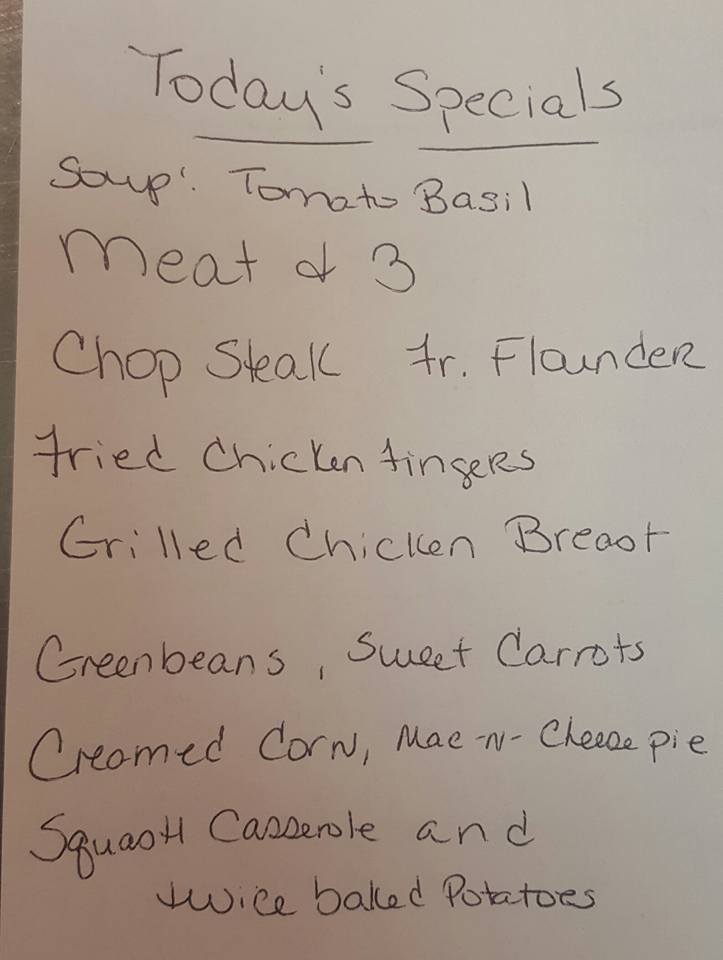 Today's Specials
Soup: Tomato Basil
Meat & 3
Chop Steak Fr. Flounder
Fried Chicken fingers
Grilled Chicken Breast
Greenbeans, Sweet Carrots
Creamed Corn, Mac-n-Cheese pie
Squash Casserole and
twice baked Potatoes